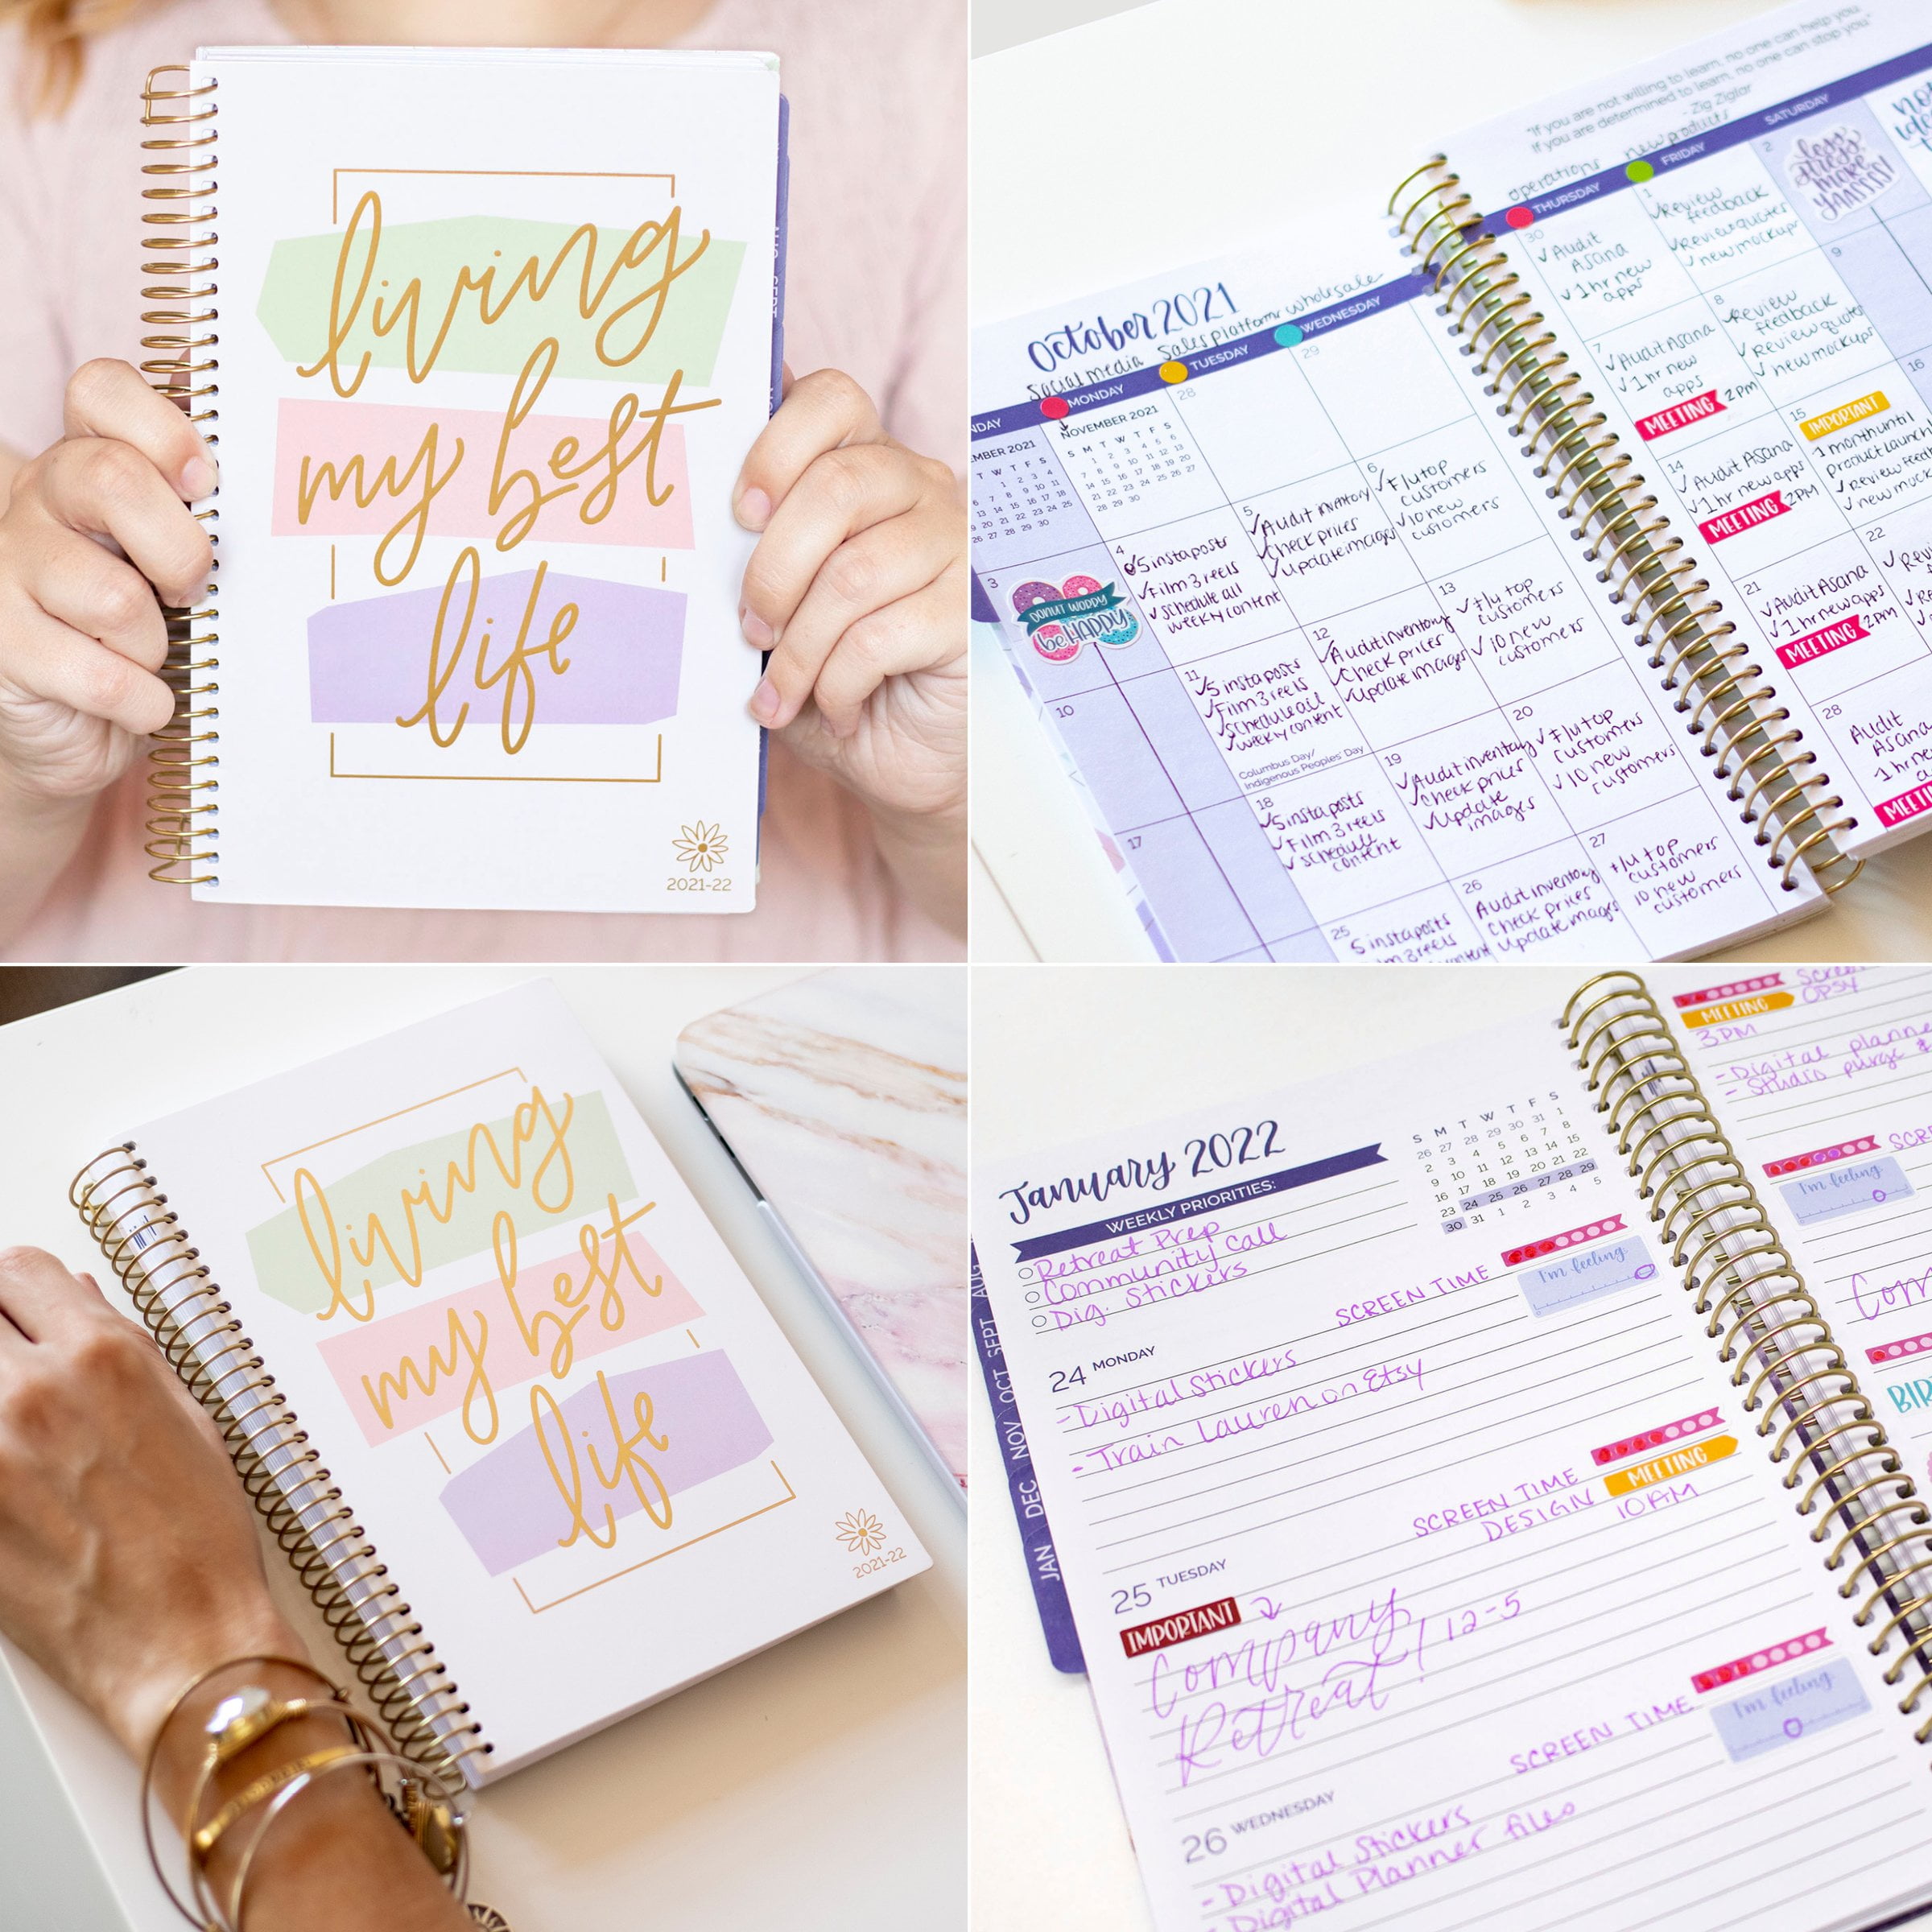 living
my best
life
2021-22
AUG SEPT
"If you are not willing to learn, no one can help you.
If you are determined to learn, no one can stop you."
- Zig Ziglar
October 2021
Social media
Sales platforms
wholesale
operations
new products
MONDAY
TUESDAY
WEDNESDAY
THURSDAY
FRIDAY
SATURDAY
NOVEMBER 2021
S M T W T F S
1 2 3 4 5 6
7 8 9 10 11 12 13
14 15 16 17 18 19 20
21 22 23 24 25 26 27
28 29 30
28
29
30
✓ Audit
Asana
✓ 1 hr new
apps
1
✓ Review
feedback
✓ Review quotes
✓ new mockups
2
less
stress
more
yaassss!
3
DONUT WORRY
be HAPPY
4
✓ 5 insta posts
✓ Film 3 reels
✓ schedule all
weekly content
5
✓ Audit inventory
✓ Check prices
✓ update images
6
✓ F/u top
customers
✓ 10 new
customers
7
✓ Audit Asana
✓ 1 hr new
apps
MEETING 2pm
8
✓ Review
feedback
✓ Review quotes
✓ new mockups
9
10
11
✓ 5 insta posts
✓ Film 3 reels
✓ schedule all
✓ weekly content
Columbus Day/
Indigenous Peoples' Day
12
✓ Audit inventory
✓ Check prices
✓ update images
13
✓ F/u top
customers
✓ 10 new
customers
14
✓ Audit Asana
✓ 1 hr new apps
MEETING 2PM
15
IMPORTANT
1 month until
product launch
✓ Review feed
✓ new mock
16
17
18
✓ 5 insta posts
✓ Film 3 reels
✓ schedule
content
19
✓ Audit inventory
✓ Check prices
✓ update
images
20
✓ F/u top
customers
✓ 10 new
customers
21
✓ Audit Asana
✓ 1 hr new apps
MEETING 2pm
22
25
5 insta posts
Film 3 reels
26
Audit inventory
Check prices
update images
27
F/u top
customers
10 new
customers
28
Audit
Asana
1 hr new
living
my best
life
2021-22
January 2022
WEEKLY PRIORITIES:
Retreat Prep
Community call
Dig. Stickers
S M T W T F S
26 27 28 29 30 31 1
2 3 4 5 6 7 8
9 10 11 12 13 14 15
16 17 18 19 20 21 22
23 24 25 26 27 28 29
30 31 1 2 3 4 5
SCREEN TIME
I'm feeling
24 MONDAY
- Digital Stickers
- Train Lauren on Etsy
SCREEN TIME
DESIGN MEETING
10AM
25 TUESDAY
IMPORTANT
Company
Retreat! 12-5
SCREEN TIME
I'm feeling
26 WEDNESDAY
- Digital Stickers
- Digital Planner files
AUG
SEPT
OCT
NOV
DEC
JAN
MEETING OPSY
3PM
- Digital planne
- Studio purge &
I'm feeling